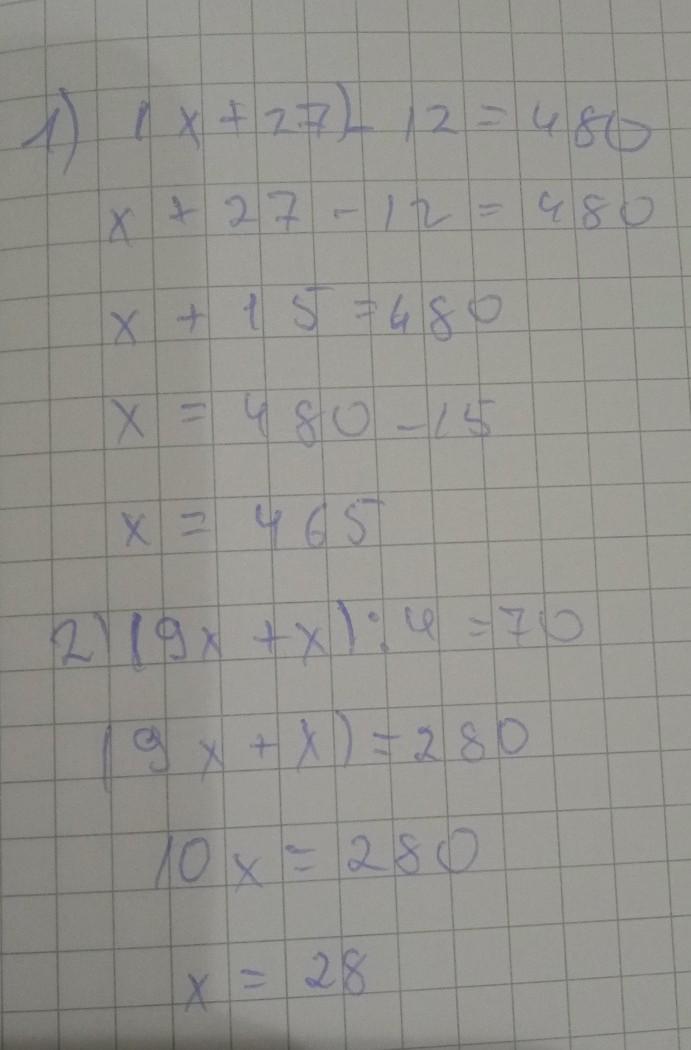 1) (x+27)-12=480
x+27-12=480
x+15=480
x=480-15
x=465
2) (9x+x):4=70
(9x+x)=280
10x=280
x=28